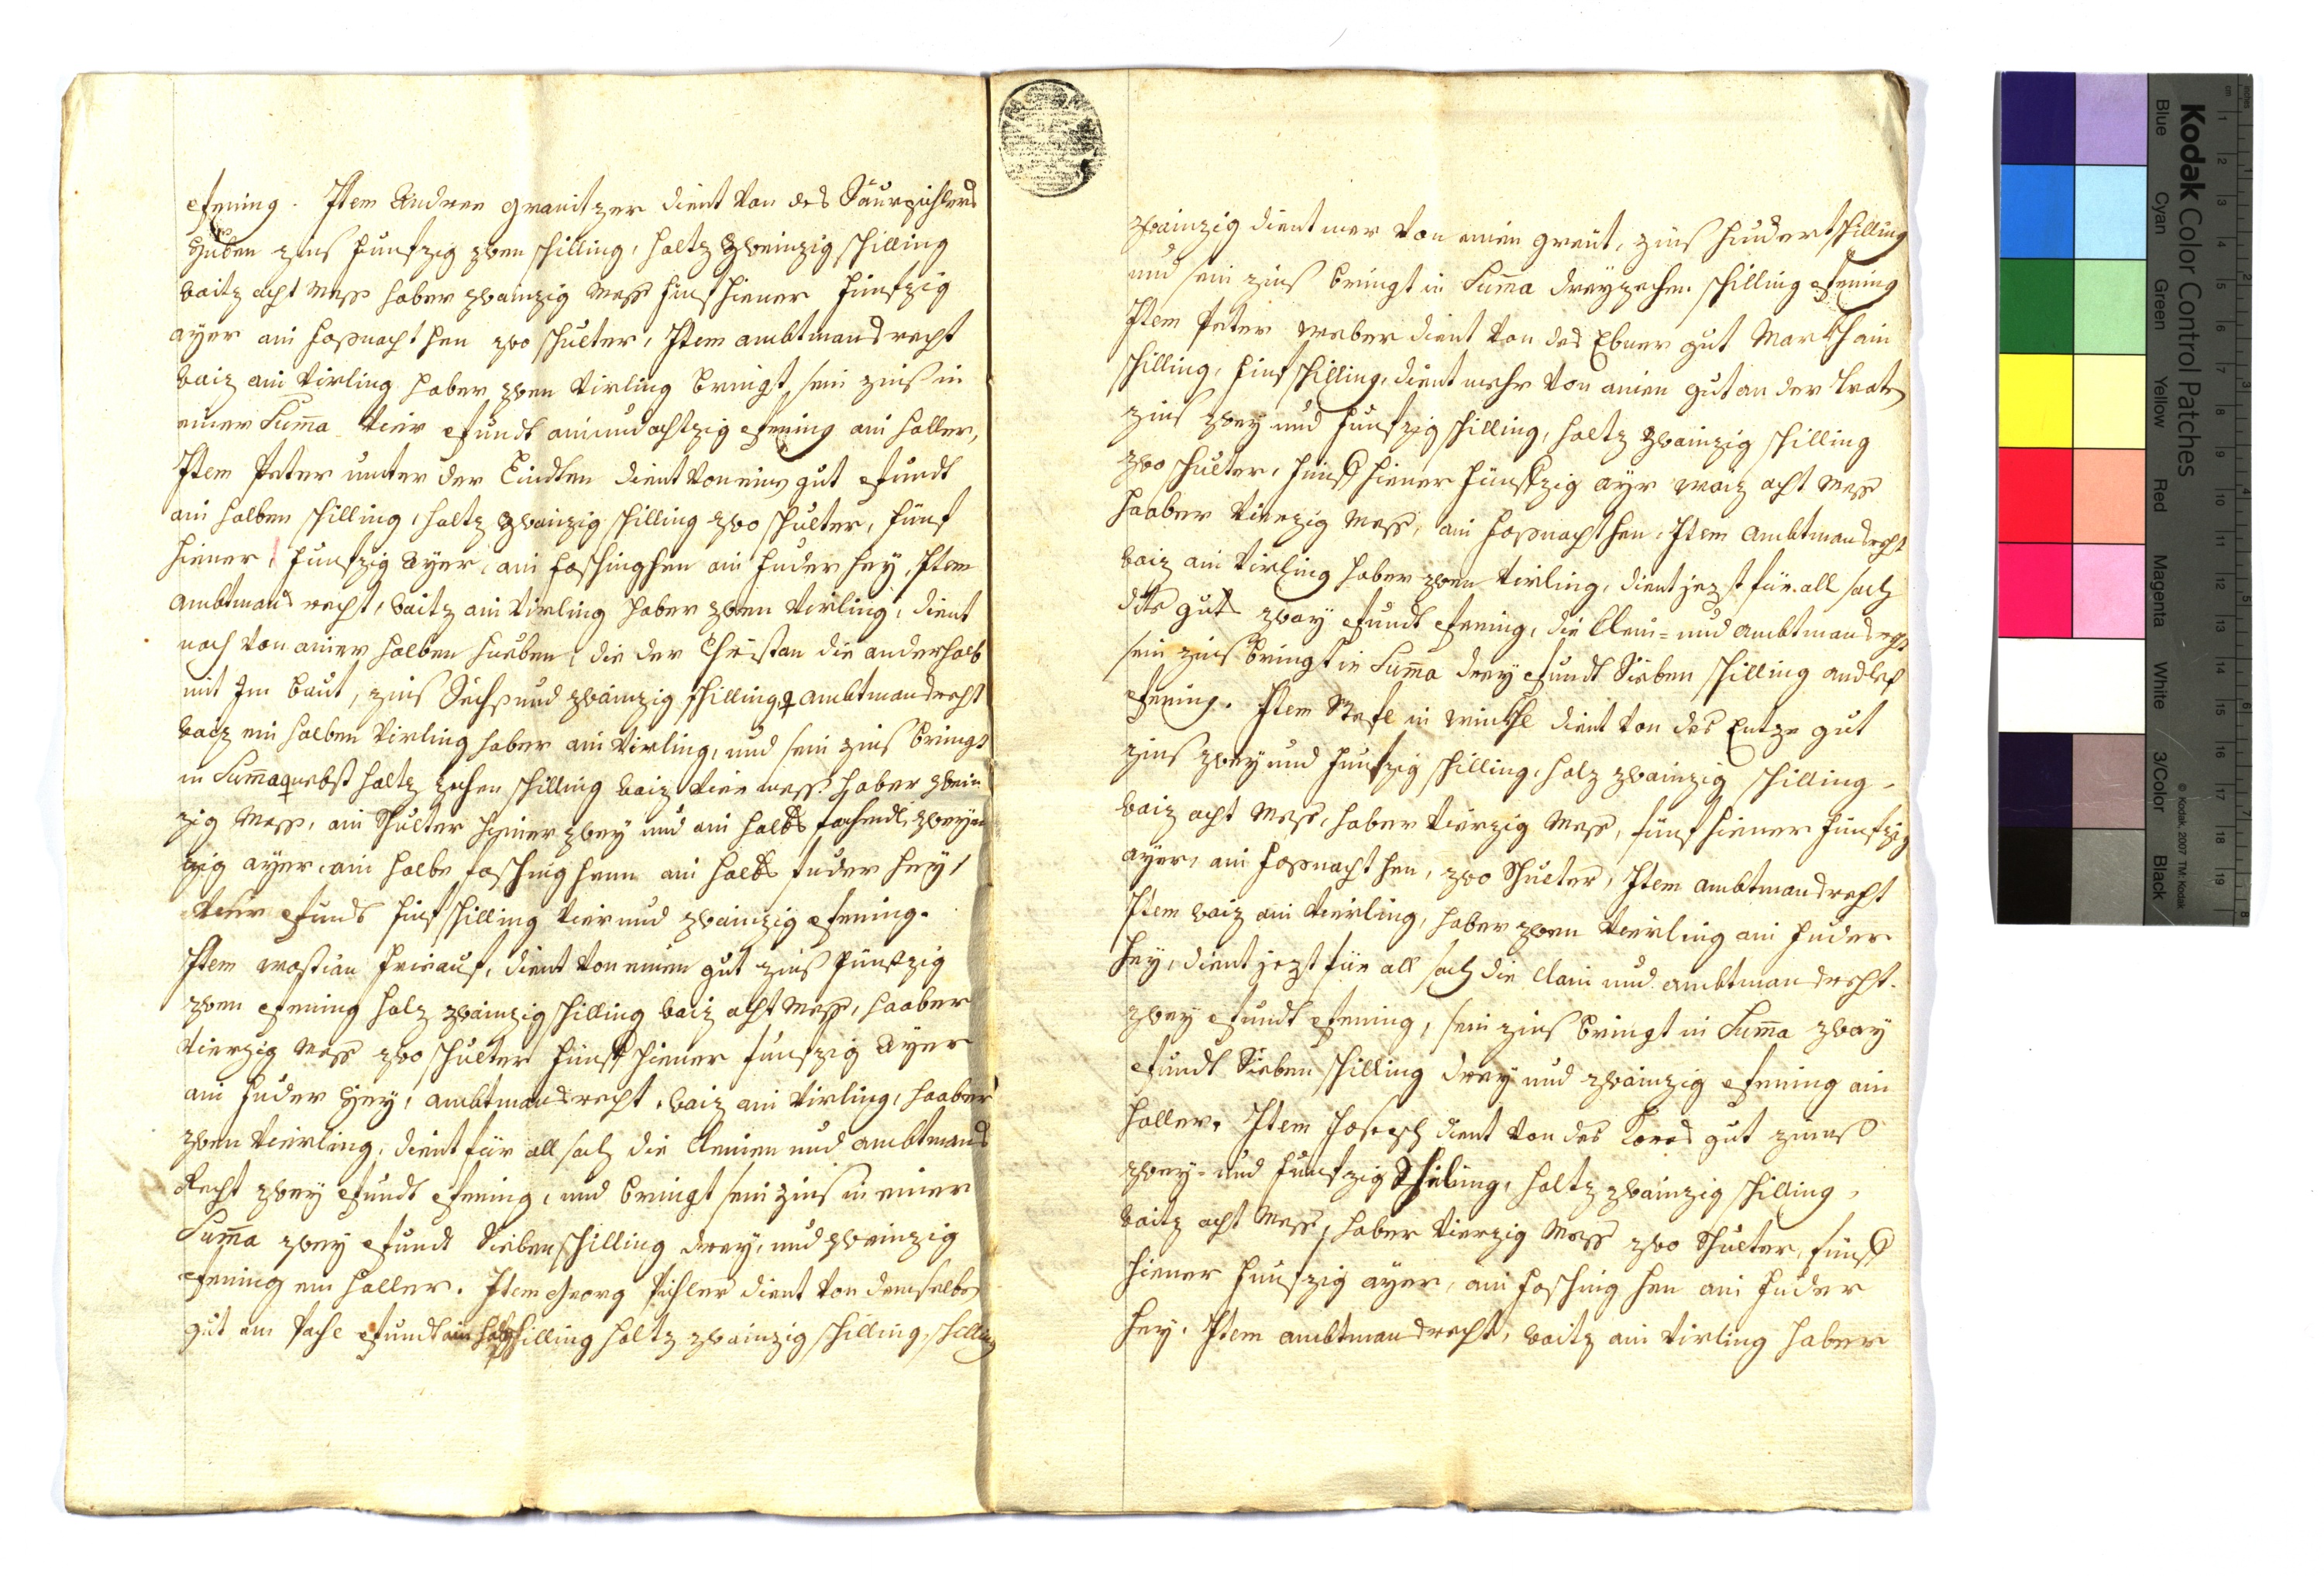 pfening. Item Andree Granitzer dient von des Saurpichlers
Hueben zins funfzig zwen schilling, holtz zweinzig schilling
waitz acht Mess haber zwainzig Mess funf hiener funfzig
ayer ain fossnacht hen zwo schulter, Item ambtmans recht
waiz ain virling haber zwen virling bringt sein zinss in
einer Suma vier pfundt ainundachtzig pfening ain haller,
Item Peter unter der Lindten dient von eim gut pfundt
ain halben schilling, holtz zwainzig schilling zwo schulter, fünf
hiener, funfzig ayer, ain foschinghen ain fuder hey, Item
ambtmans recht, waitz ain virling haber zwen virling, dient
noch von ainer halben hueben, die der Christan die anderhalb
mit Im baut, zins Sechs und zwainzig schilling ambtmandrecht
waiz ein halben virling haber ain virling, und sein zins bringt
in Suma nebst holtz zechen schilling waiz vier mess haber zwein
zig Mess, ain Schulter hyener zwey und ain halbs zwey
zig ayer, ain halbe foschinghenn ain halbs fuder hey,
vier pfunds finf schilling vier und zwainzig pfening.
Item wastian freiauf, dient von einen gut zins funfzig
zwen pfening holz zwainzig schilling waiz acht Mess, haaber
vierzig Mess zwo schulter funff hiener funfzig ayer
ain fuder Hey, ambtmandrecht, waiz ain virling, haaber
zwen vierling, dient für all sach die kleinen und ambtmans
Recht zwey pfundt pfening, und bringt sein zins in einer
Suma zwey pfundt Sieben schilling drey, und zweinzig
pfening ein haller. Item Georg Pichler dient von demselben
gut am Pachl pfundt ain halb schilling holtz zwainzig schilling, schilling
zwainzig dient mer von einen greut, zins hundert schilling
und sein zins bringt in Suma dreyzechen schilling pfening
Item Peter weber dient von des Ebner gut Markh ain
schilling, finf schilling, dient mehr von ainen gut an der
zins zwey und funfzig schilling, holtz zwainzig schilling
zwo schulter, funff hiener funfzig ayr waiz acht Mess
haaber vierzig Mess, ain fossnacht hen, Item ambtmandrecht
waiz ain virling haber zwen virling, dient jezst für all sach
dits guts zway pfundt pfening, die klein= und ambtmandrecht
sein zins bringt in Suma drey pfundt Sieben schilling andlef
pfening. Item Stefl in winkhl dient von des Entze gut
zins zwey und funfzig schilling, holz zwainzig schilling,
waiz acht Mess, haber vierzig Mess, fünf hiener funfzig
ayer, ain fossnacht hen, zwo Schulter, Item ambtmandrecht
Item waiz ain vierling, haber zwen vierling ain fuder
hey, dient jezst für all sach die klain und ambtmandrecht.
zwey pfundt pfening, sein zins bringt in Suma zway
pfundt Sieben schilling drey und zwainzig pfening ain
haller. Item Joseph dient von des gut zinss
zwey= und funfzig Schiling, holtz zwainzig schilling,
waitz acht Mess, haber vierzig Mess zwo Schulter, funff
hiener funfzig ayer, ain fosching hen ain fuder
hey. Item ambtmandrecht, waitz ain virling haber
Kodak Color Control Patches
Blue Cyan Green Yellow Red Magenta White 3/Color Black
© Kodak, 2007 TM: Kodak
inches 1 2 3 4 5 6 7 8
cm 1 2 3 4 5 6 7 8 9 10 11 12 13 14 15 16 17 18 19